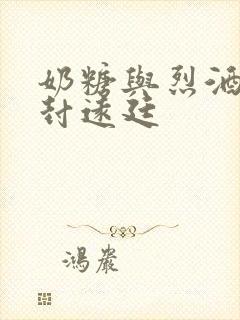 奶糖與烈酒
封遠廷
鴻嚴